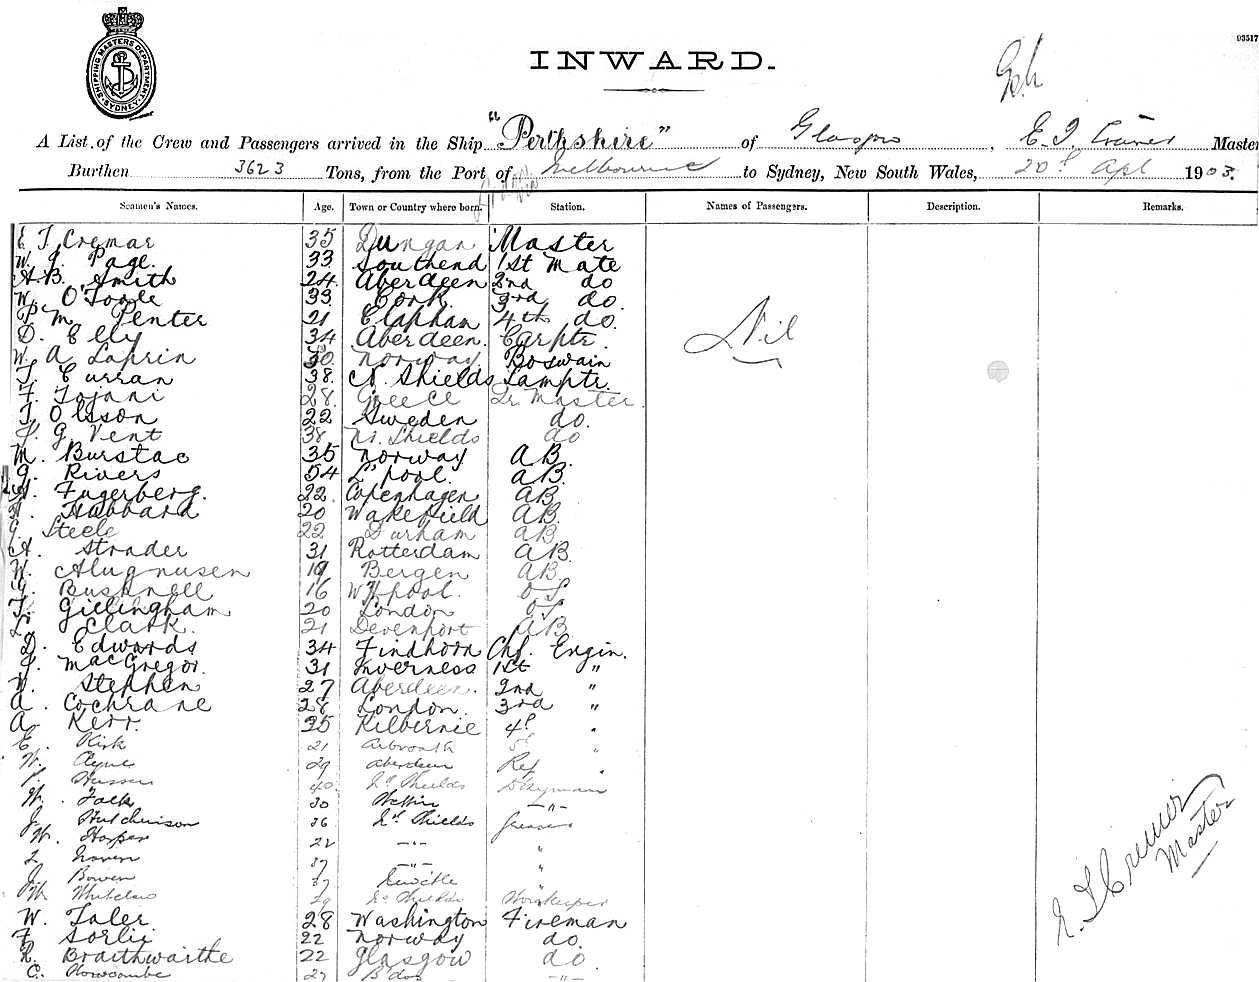 SHIPPING MASTERS DEPARTMENT SYDNEY
03517
INWARD.
A List of the Crew and Passengers arrived in the Ship "Perthshire" of Glasgow, E. T. Cremer Master
Burthen 3623 Tons, from the Port of Melbourne to Sydney, New South Wales, 20th Apl 1903.
Seamen's Names. Age. Town or Country where born. Station. Names of Passengers. Description. Remarks.
E T Cremar 35 Master
W. J. Page. 33 Southend 1st Mate
A. B. Smith 24. Aberdeen 2nd do
W. O'Toole 33 Cork. 3rd do.
P M Penter 21 Clapham 4th do.
Nil
D. Elly 34 Aberdeen. Carptr.
W. A Laprin 30 Norway. Boswain
T. Curran 38. N. Shields Lamptr.
F. Tojani 28. Greece Qr. Master.
T. Olsson 22 Sweden do.
J. G. Vent 38 No. Shields do
M. Burstad 35 Norway AB.
G. Rivers 54 L'pool. AB.
Fagerberg. 22. Copenhagen AB
H. Hubbard 20 Wakefield AB.
G. Steele 22 Durham AB
A. Strader 31 Rotterdam AB.
W. 19 Bergen AB.
G. Bushnell 16 W H'pool. OS
T. Gillingham 20 London OS
Clark. 21 Devenport AB
D. Edwards 34 Findhorn Chf. Engin.
J. MacGregor. 31 Inverness 1st "
W. Stephen 27 Aberdeen. 2nd "
A. Cochrane 28 London. 3rd "
A. Kerr. 35 Kilbernie 4th "
E. Kirk 21 Arbroath 5th "
W. 29 Aberdeen Ref "
40 So Shields Dkyman
W. Falk 30 —"—
J. Hutchinson 36 So. Shields Greaser
W. Harper 22 —"— "
37 —"— "
J. Bowen 37 "
W. Whitelaw 29 So Shields Storekeeper
W. Taler 28 Washington Fireman
F. Sorlie 22 Norway do.
R. Braithwaithe 22 Glasgow do.
C. 27 B'dos —"—
E. T Cremer
Master